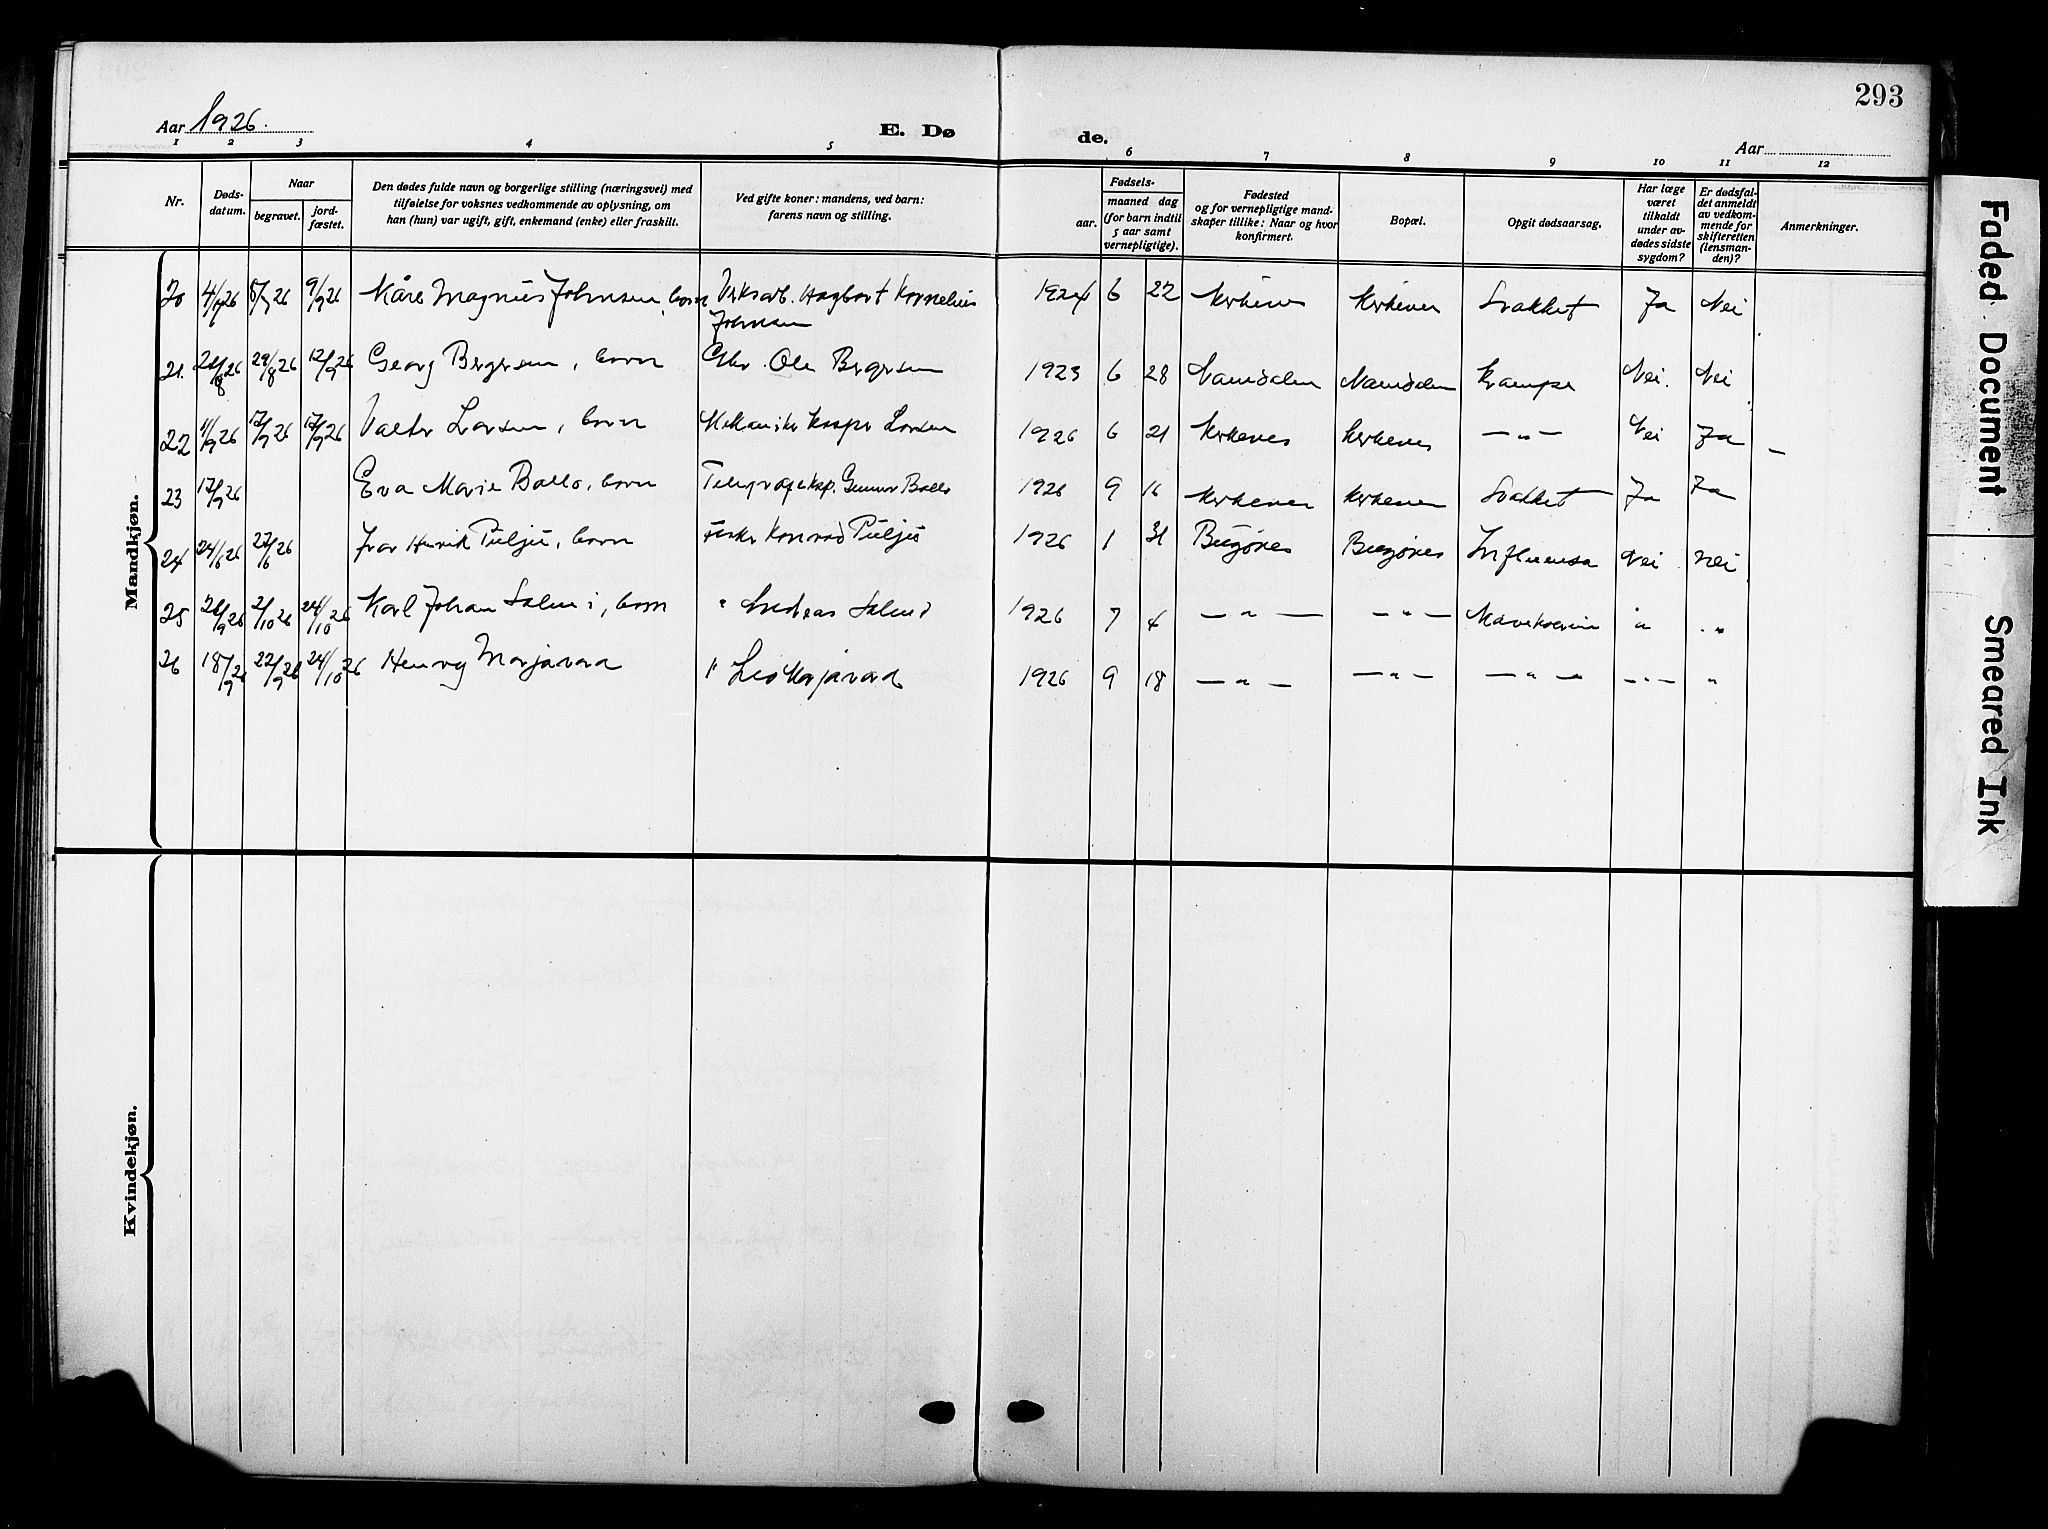 293
Aar 1926.
E. Døde.
Aar
1 2 3 4 5 6 7 8 9 10 11 12
Nr.
Døds-
datum.
Naar
begravet.
jord-
fæstet.
Den dødes fulde navn og borgerlige stilling (næringsvei) med
tilføielse for voksnes vedkommende av oplysning, om
han (hun) var ugift, gift, enkemand (enke) eller fraskilt.
Ved gifte koner: mandens, ved barn:
farens navn og stilling.
Fødsels-
aar.
maaned dag
(for barn indtil
5 aar samt
vernepligtige).
Fødested
og for vernepligtige mand-
skaper tillike: Naar og hvor
konfirmert.
Bopæl.
Opgit dødsaarsag.
Har læge
været
tilkaldt
under av-
dødes sidste
sygdom?
Er dødsfal-
det anmeldt
av vedkom-
mende for
skifteretten
(lensman-
den)?
Anmerkninger.
Mandkjøn.
20 Kåre Magnus Johnsen, barn Hagbart Kornelius 1924 6 22 Kirkenes Kirkenes Svakhet Ja Nei
Johnsen
21. 29/8 26 12/9 26 Georg Bergersen, barn Ole Bergersen 1923 6 28 Krampe Nei. Nei
22 11/9 26 17/9 26 17/9 26 Larsen, barn Mekaniker Larsen 1926 6 21 Kirkenes Kirkenes — " — Nei Ja
23 17/9 26 Eva Marie Ballo, barn Gunnar Ballo 1926 9 16 Kirkenes Kirkenes Svakhet Ja Ja
24 24/6 26 27/6 26 Ivar Henrik Puljü, barn Fisker Konrad Puljü 1926 1 31 Bugønes Bugønes Influensa Nei Nei
25 26/9 26 2/10 26 24/10 26 Karl Johan Salmi, barn " Andreas Salmi 1926 7 4 — " — — " — " "
26 18/9 26 22/9 26 24/10 26 Henry Marjavara " Leo Marjavara 1926 9 18 — " — — " — — " — — " — "
Kvindekjøn.
Faded Document
Smeared Ink